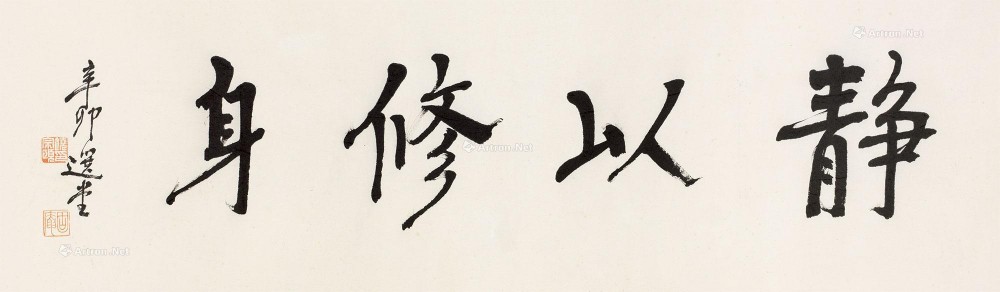 静以修身
辛卯 選堂
Artron.Net
Artron.Net
Artron.Net